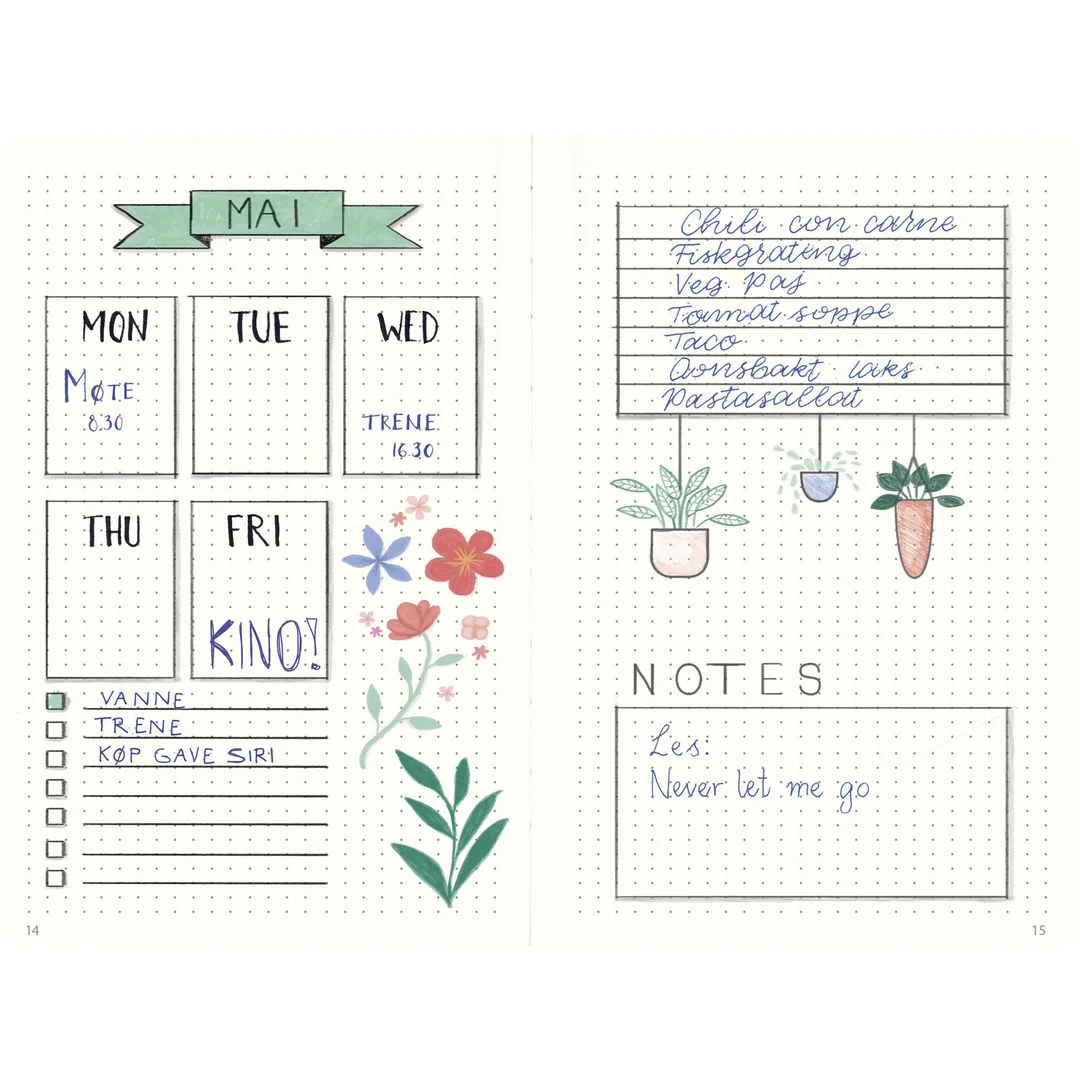 MAI
MON
MØTE
8.30
TUE
WED
TRENE
16.30
THU
FRI
KINO!
VANNE
TRENE
KØP GAVE SIRI
14
Chili con carne
Fiskgrateng
Veg. paj
Tomat soppe
Taco
Oonsbakt laks
Pastasallat
NOTES
Les:
Never let me go
15